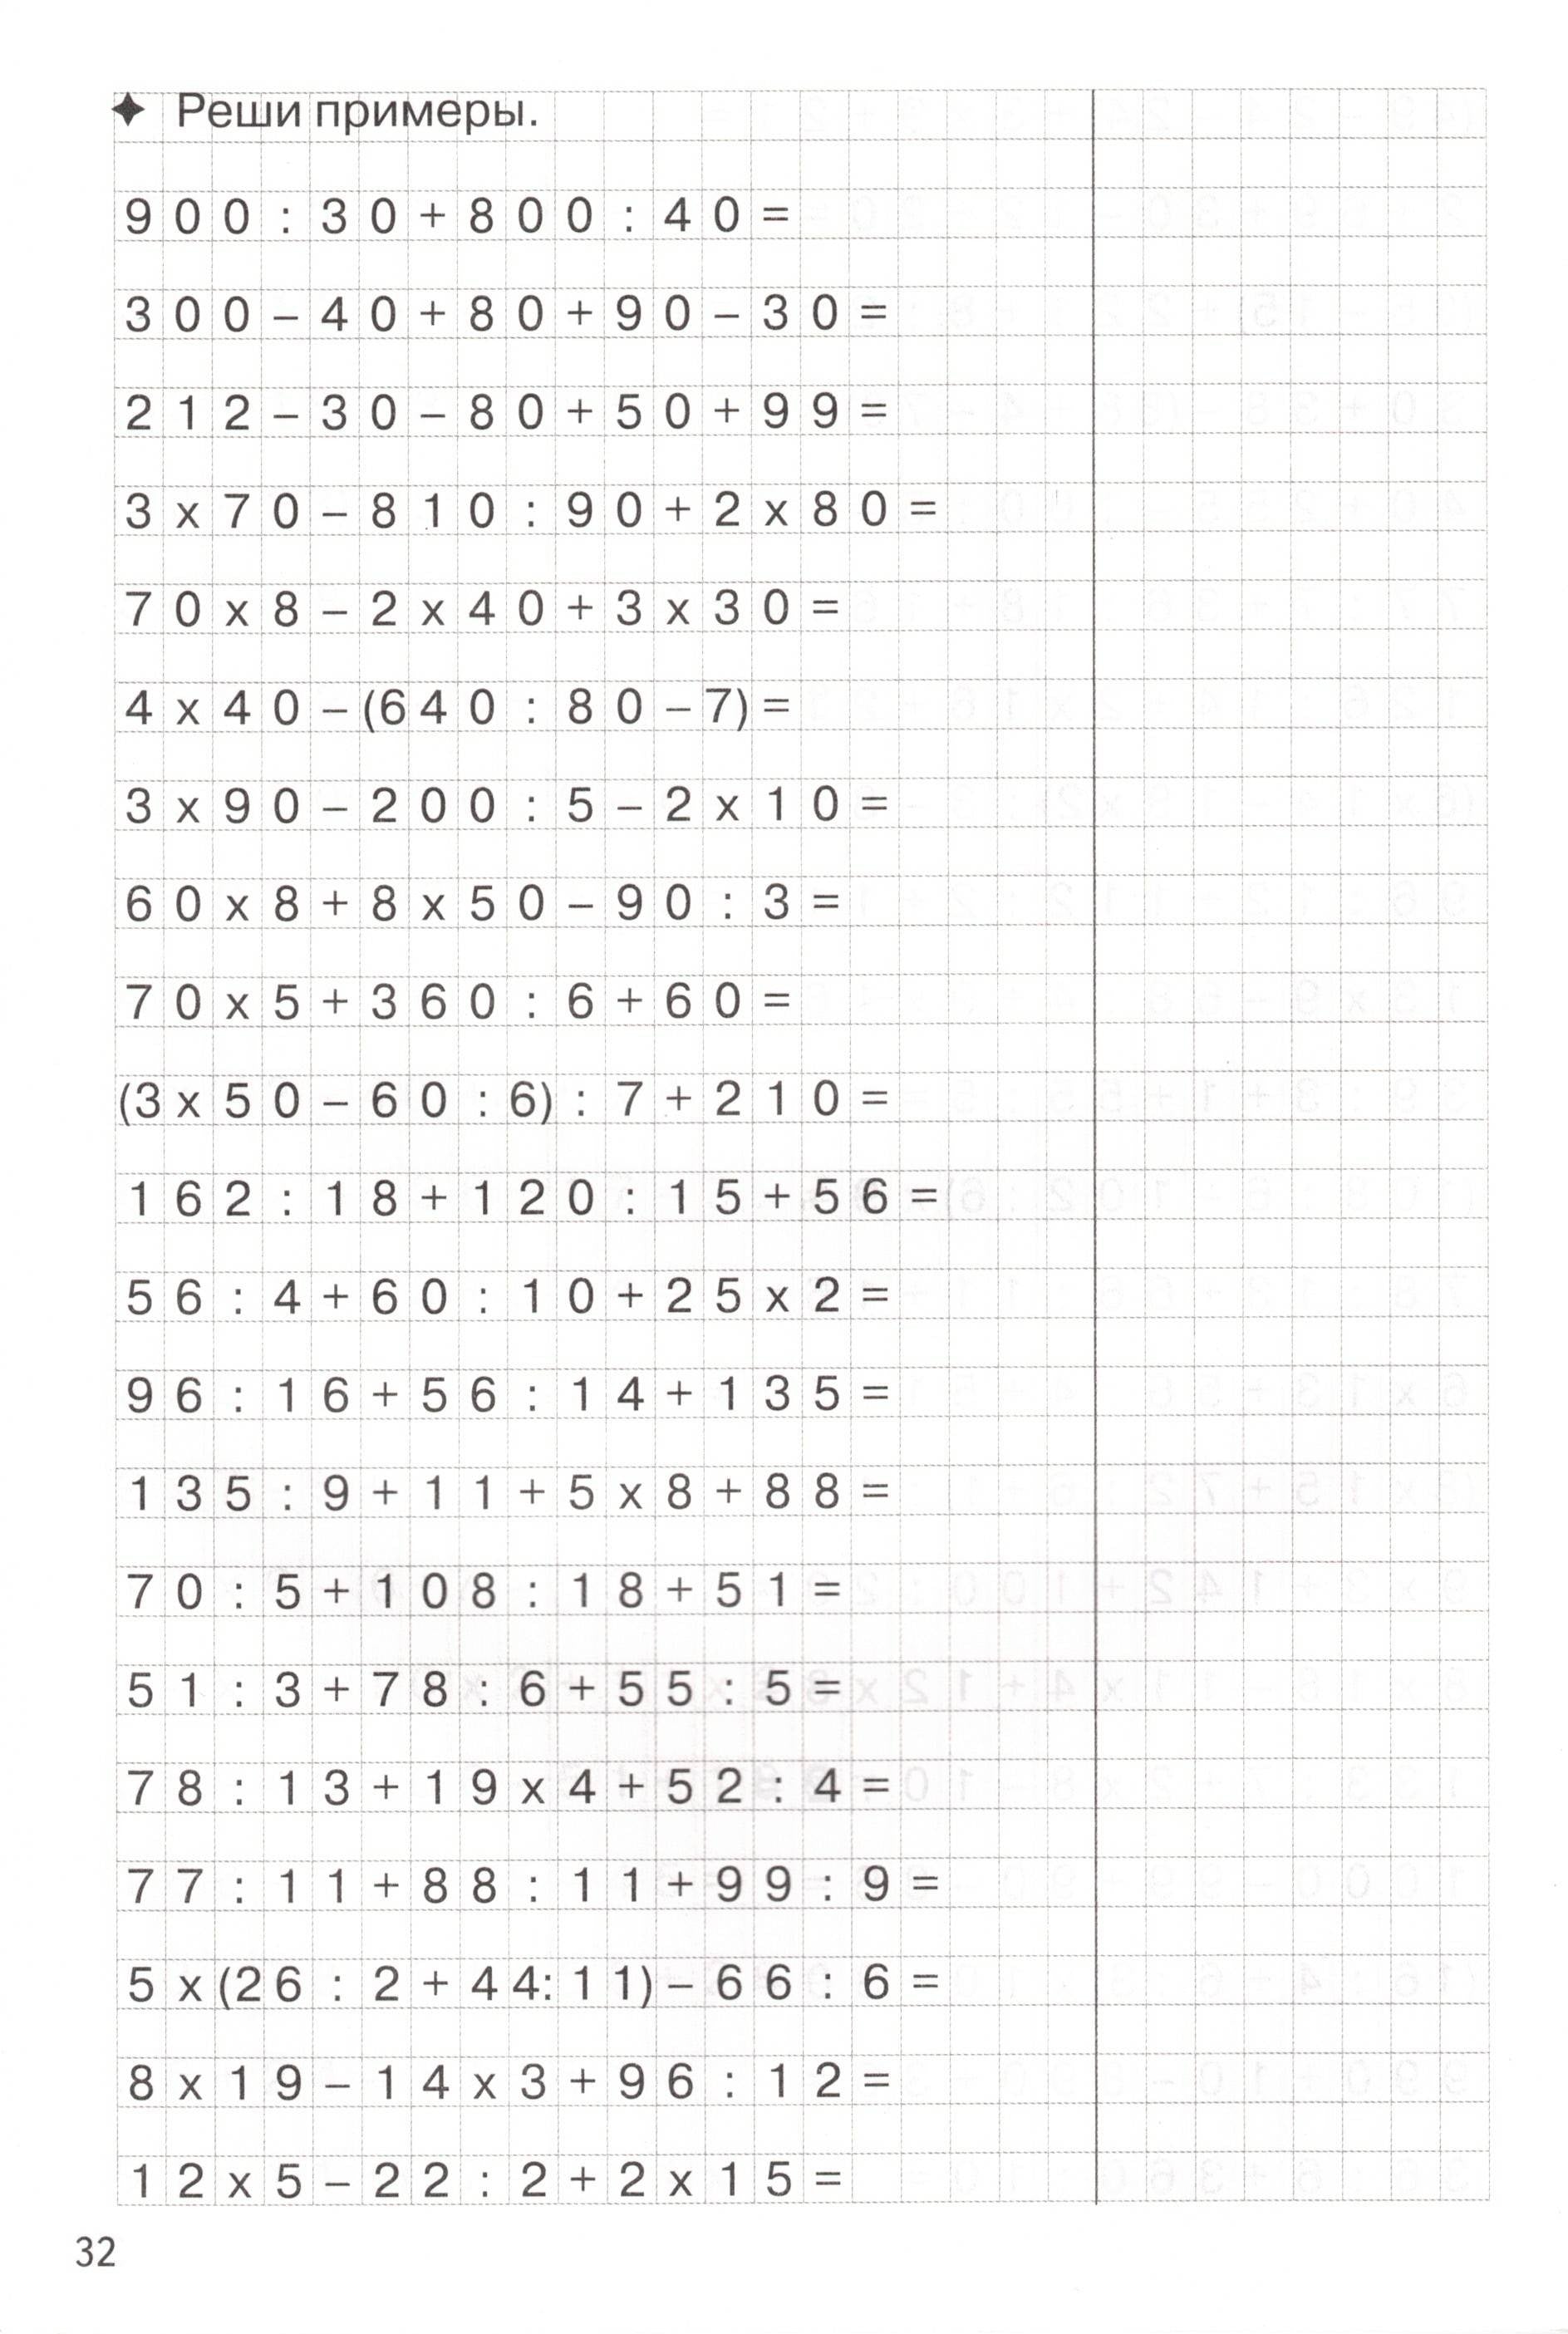 ✦ Реши примеры.
900:30+800:40=
300–40+80+90–30=
212–30–80+50+99=
3х70–810:90+2х80=
70х8–2х40+3х30=
4х40–(640:80–7)=
3х90–200:5–2х10=
60х8+8х50–90:3=
70х5+360:6+60=
(3х50–60:6):7+210=
162:18+120:15+56=
56:4+60:10+25х2=
96:16+56:14+135=
135:9+11+5х8+88=
70:5+108:18+51=
51:3+78:6+55:5=
78:13+19х4+52:4=
77:11+88:11+99:9=
5х(26:2+44:11)–66:6=
8х19–14х3+96:12=
12х5–22:2+2х15=
32